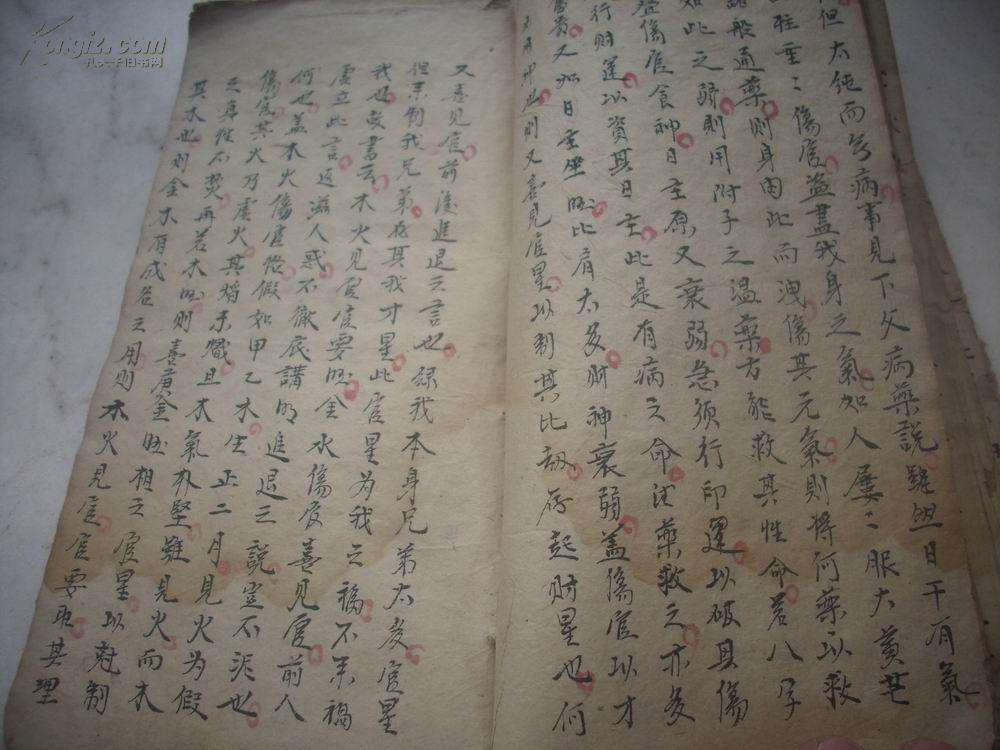 但太純而无病有見下文病藥說雖豈日干有氣
柱重二傷官盜盡我身之氣如人屢二服大黃芒
般通藥則身因此而洩傷其元氣則將何藥以救
如此之弱則用附子之溫藥方能救其性命若八字
登傷官食神日主原又衰弱急須行印運以破其傷
行財運以資其日主此是有病之命得藥救之亦多
貴又如日主坐旺比肩太多財神衰弱盖傷官以才
則又喜見官星以制其比劫存起財星也何
又喜見官前後進退之言也緣我本身兄弟太多官星
但系制我兄弟在其我才星此官星為我之福不系禍
我也故書云木火見官官要旺金水傷官喜見官前人
虛立此言返滋人惑不徹底講明進退之說豈不泥也
何也盖木火傷官恰假如甲乙木生正二月見火為假
傷官其火乃虛火其焰未熾且木氣朴堅雖見火而木
之身性不焚再若木旺則喜庚金旺相之官星以尅制
其木也則金木有成名之用則木火見官官要取其理
孔夫子旧书网